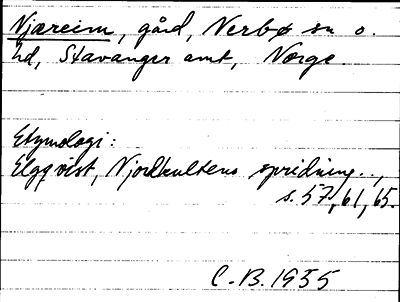 Njæreim, gård, Nerbø sn o.
hd, Stavanger amt, Norge.
Etymologi:
Elgqvist, Njordkultens spridning..,
s. 57, 61, 65.
C.B. 1955